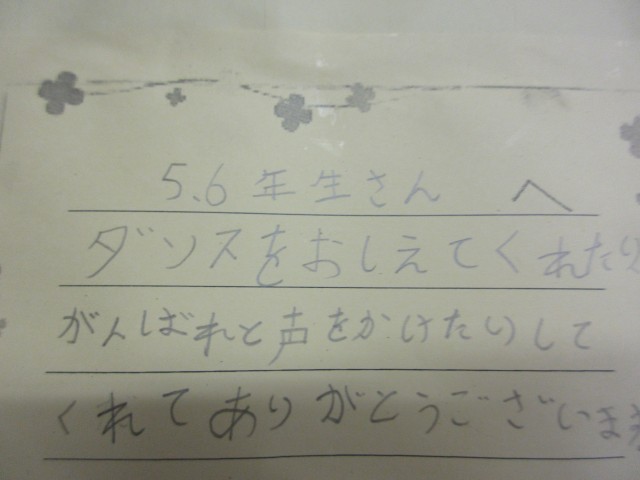 5.6年生さん へ
ダンスをおしえてくれたり
がんばれと声をかけたりして
くれてありがとうございま